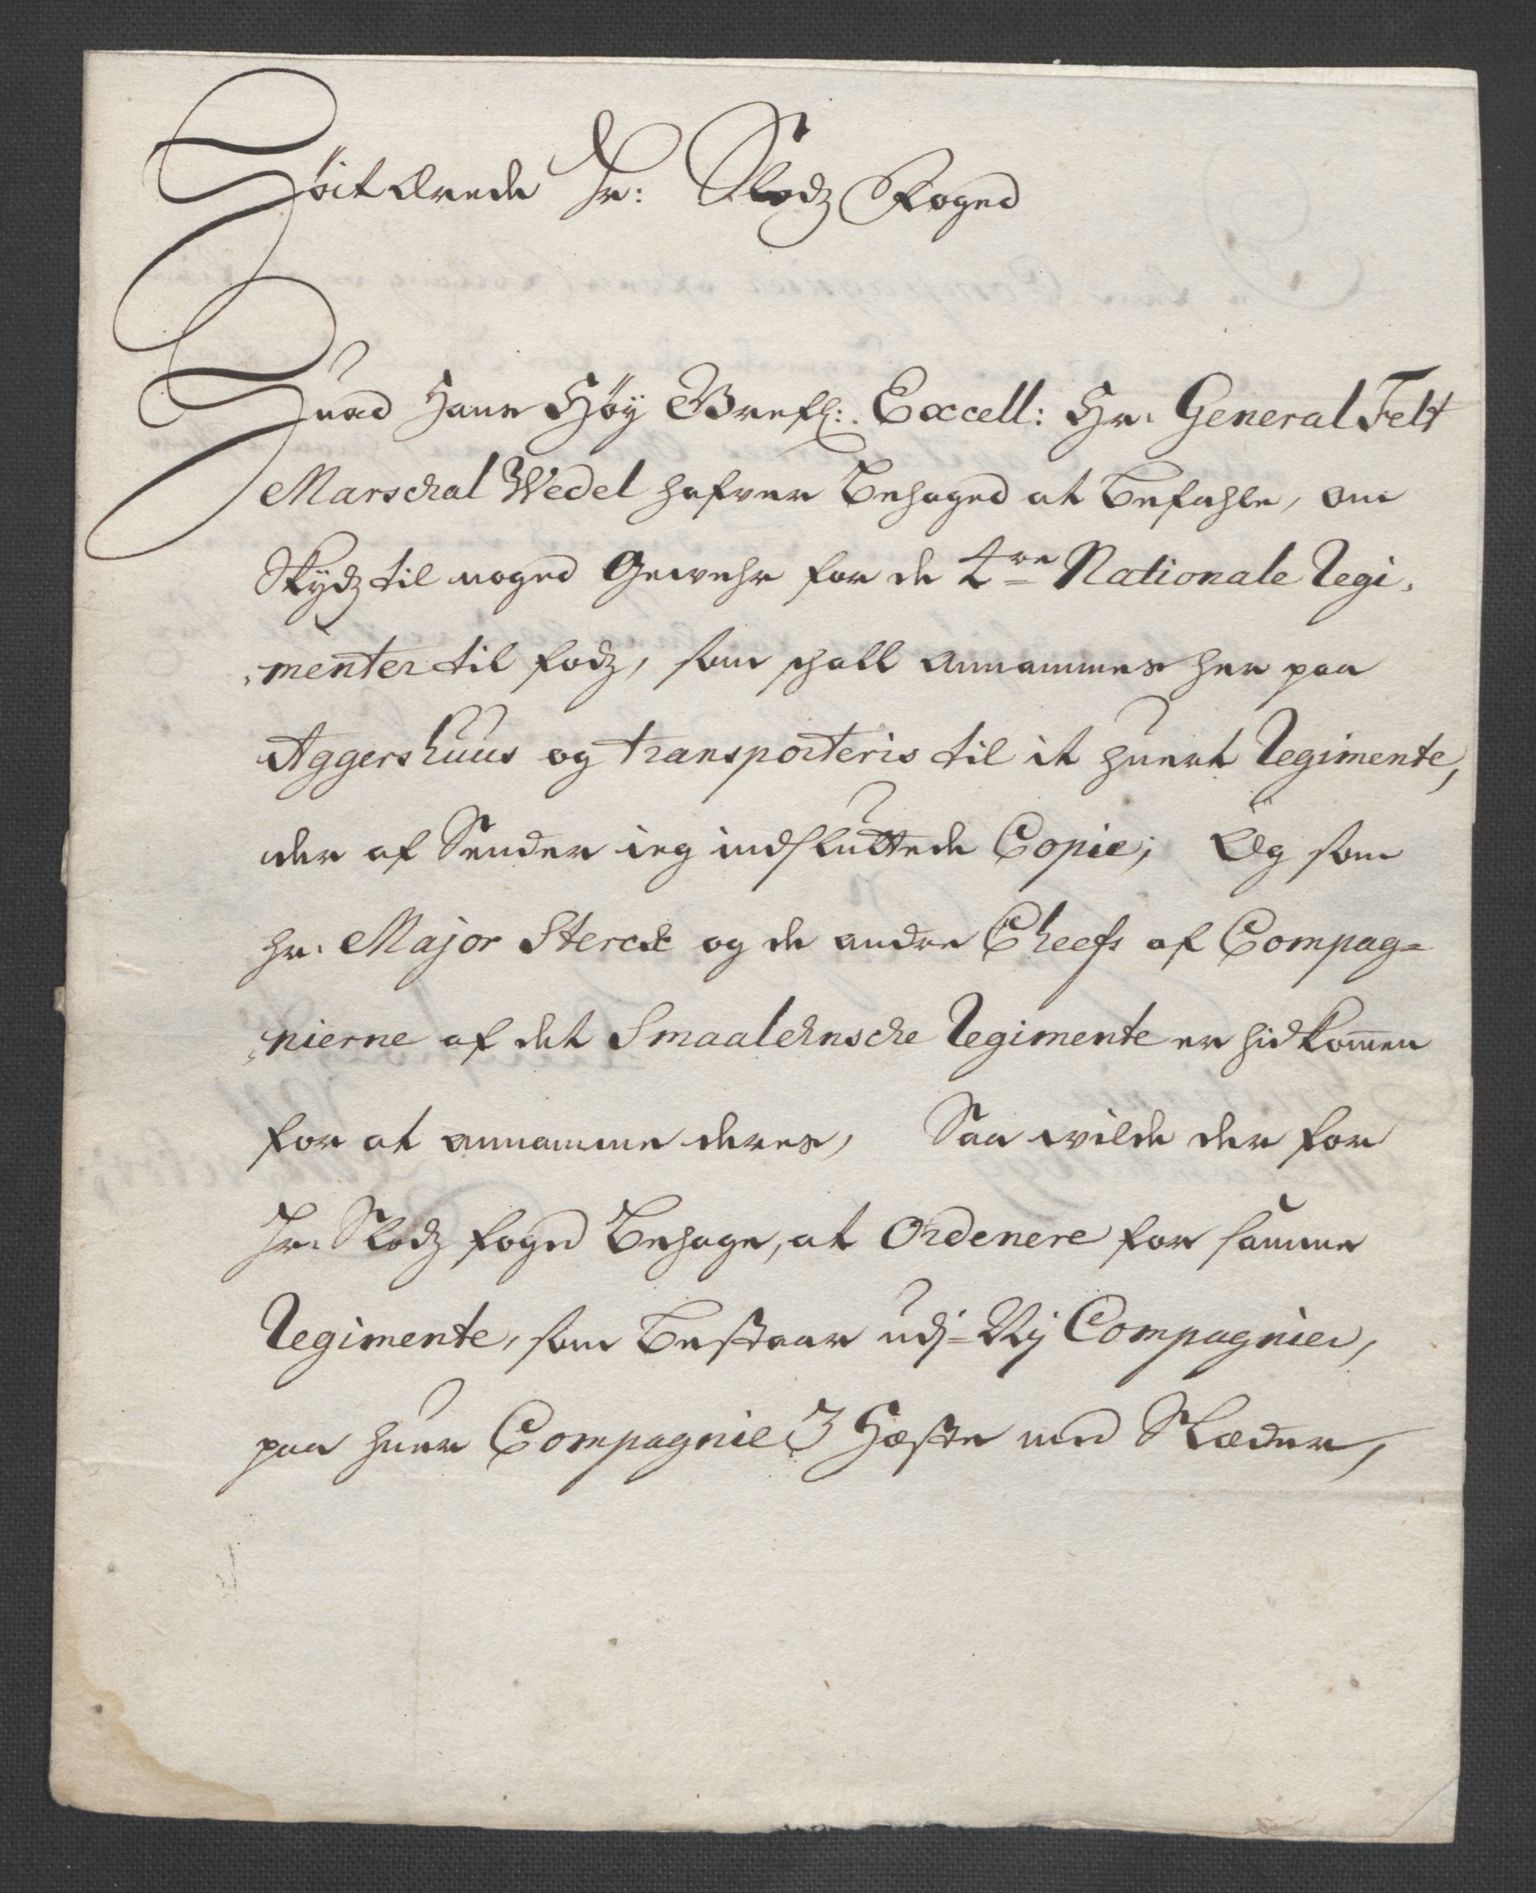 Høit Ærede Hr: Slodz Foged
Hvad Hans Høy Grefl: Excell: Hr. General Felt
Marschal Wedel hafver Behaged at Befahle, om
Skydz til noged Gewehr for de 4re Nationale Regi-
menter til fodz, som schall annammes her paa
Aggershuus og transporteris til it huert Regimente,
der af Sender ieg indsluttede Copie; Og som
hr. Major Sterck og de andre Cheefs af Compag=
nierne af det Smaalehnsche Regimente er hidkom̅en
for at annamme deres, Saa wilde der for
Hr. Slodz foged Behage, at Ordenere for samme
Regimente, som Bestaar udj Compagnier,
paa huer Compagnie 3 Hæste med Slæder,